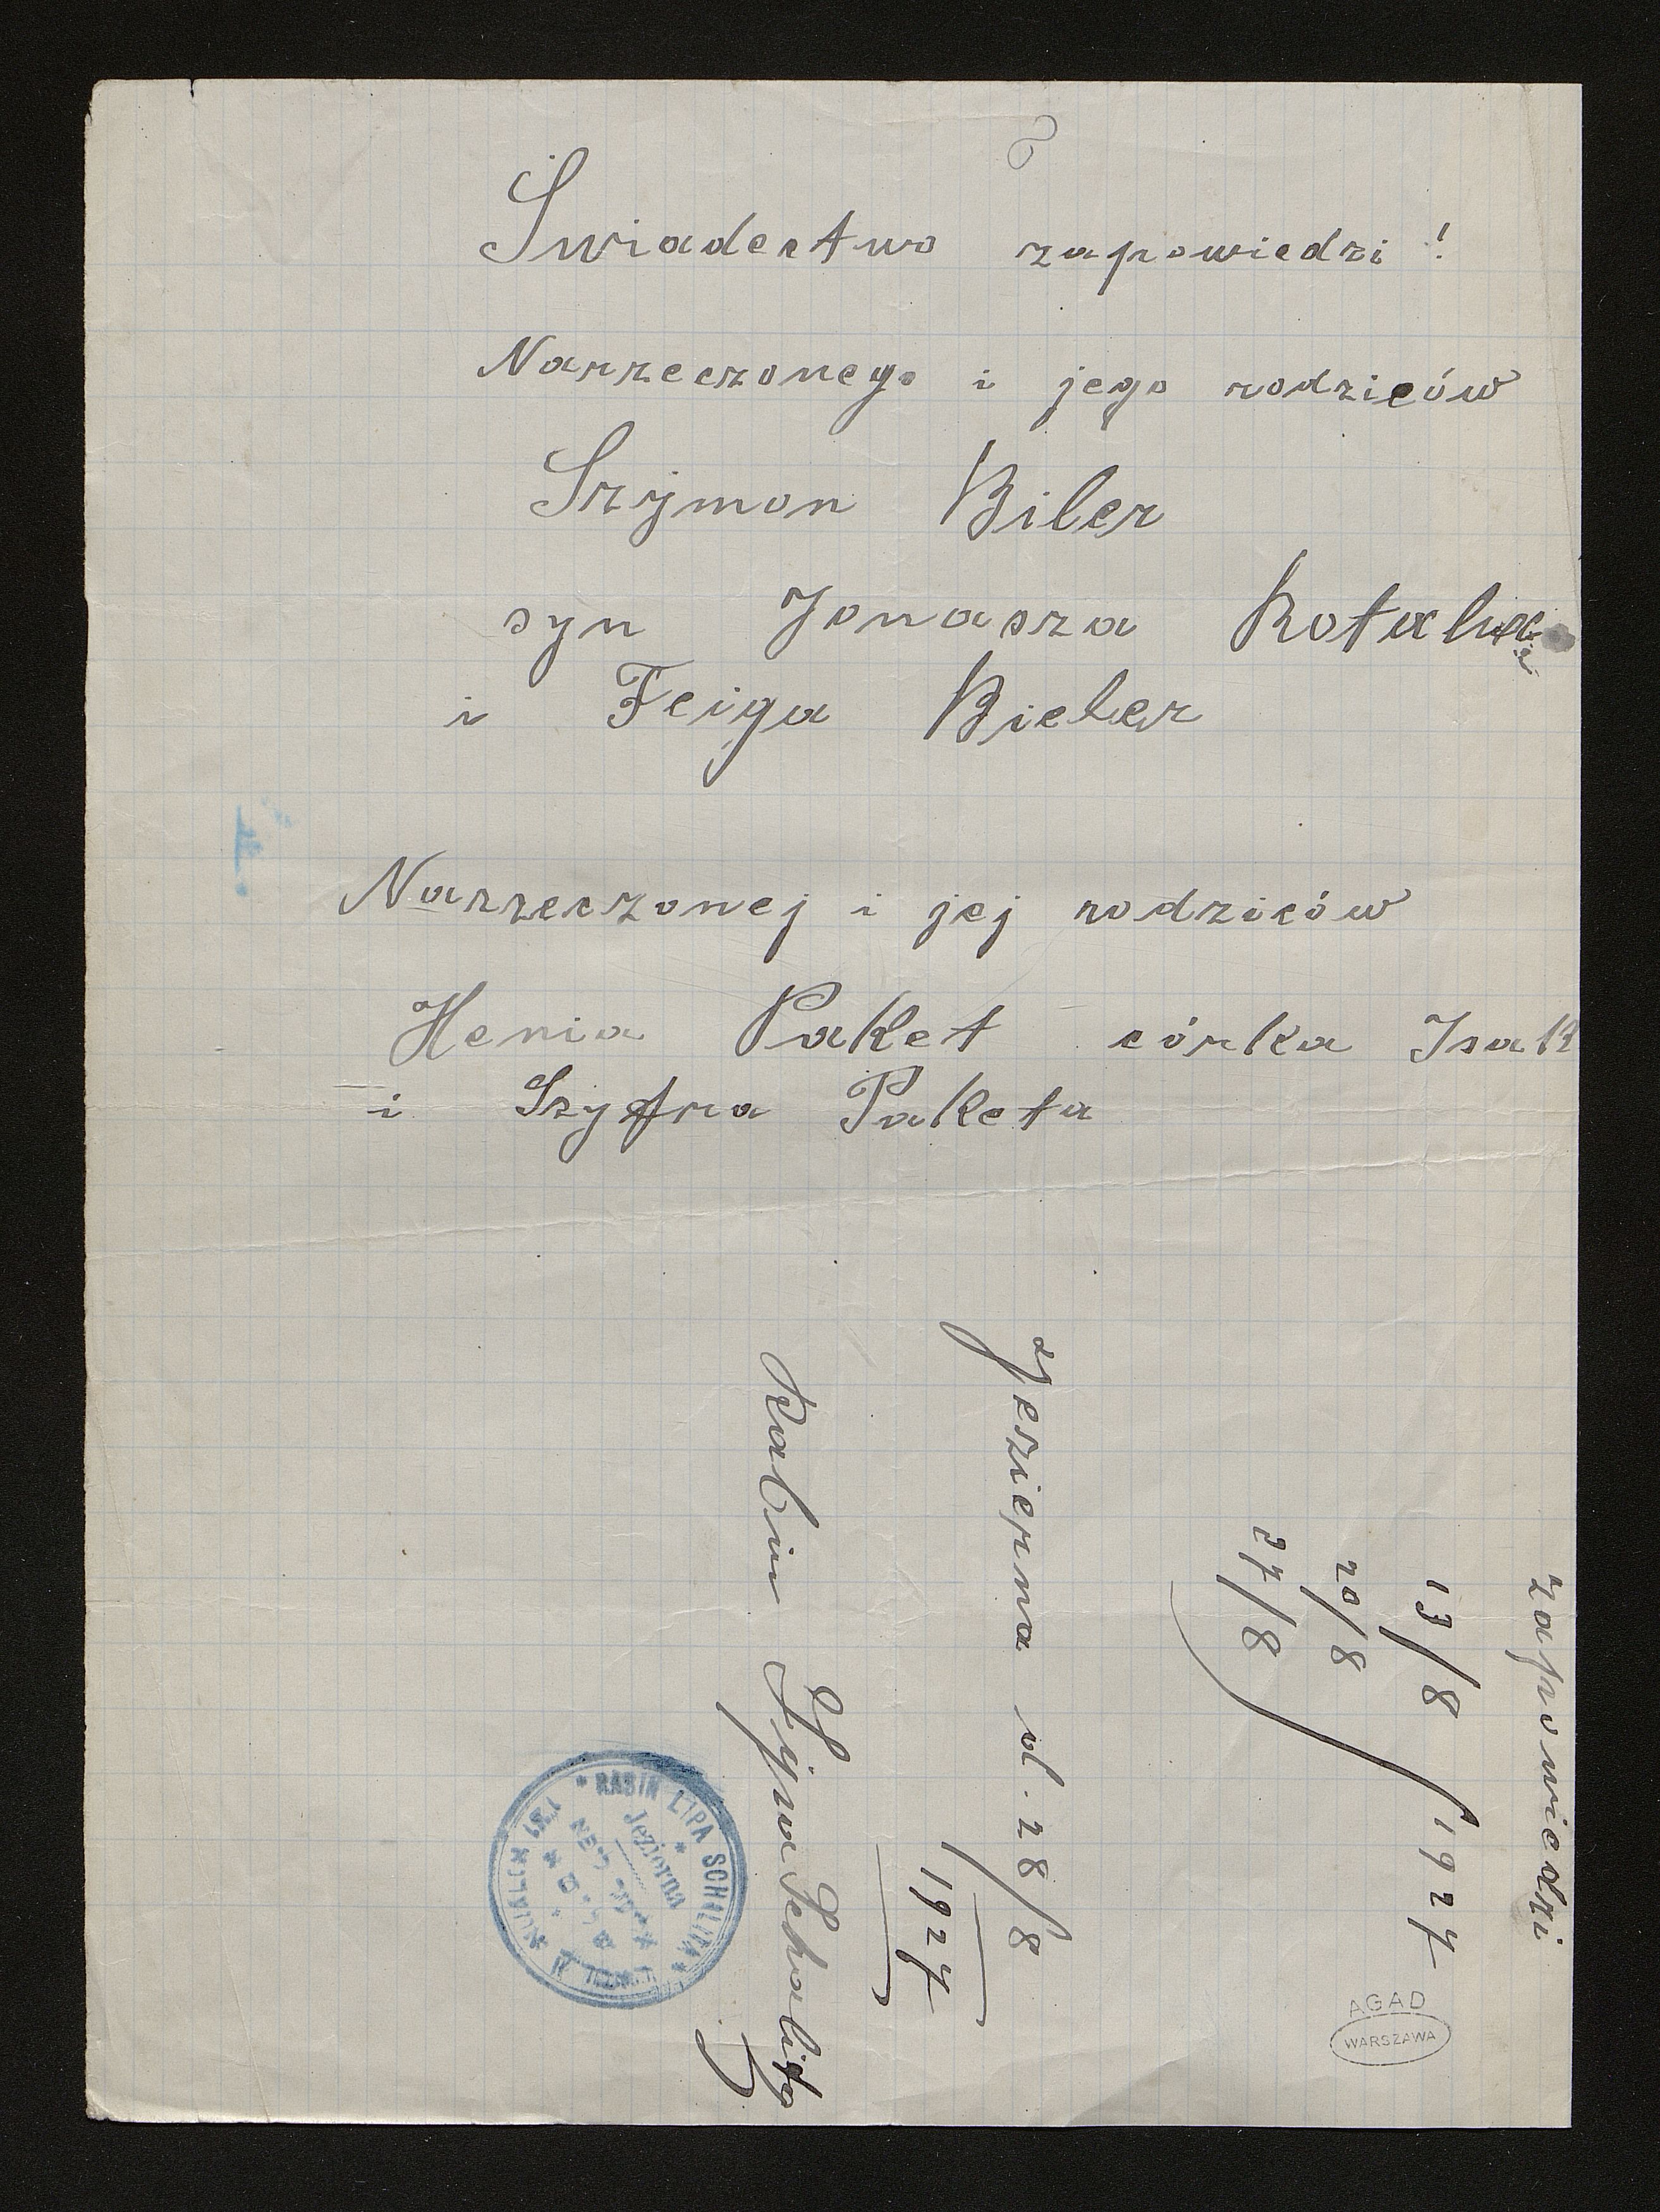 Swiadectwo zapowiedzi !
Narzeczonego i jego rodziców
Szymon Biler
syn Jonasza
i Feiga Bieler
Narzeczonej i jej rodziców
Henia Paket córka Isak
i Szyfra Paketa
zapowiedzi
13/8 1927
20/8
27/8
Jezierna d. 28/8
1927
Rabin Lipa Schalita
* RABIN LIPA SCHALITA *
Jezierna
AGAD
WARSZAWA